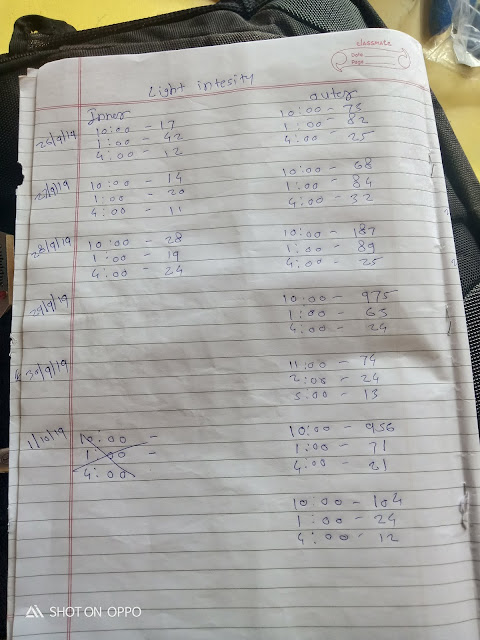 classmate
Date
Page
Light intesity
Inner
10:00 - 17
1:00 - 42
4:00 - 12
outer
10:00 - 75
1:00 - 82
4:00 - 25
10:00 - 14
1:00 - 20
4:00 - 11
10:00 - 68
1:00 - 84
4:00 - 32
28/9/19
10:00 - 28
1:00 - 19
4:00 - 24
10:00 - 187
1:00 - 89
4:00 - 25
29/9/19
10:00 - 975
1:00 - 63
4:00 - 24
30/9/19
11:00 - 74
2:00 - 24
5:00 - 13
1/10/19
10:00 -
1:00 -
4:00
10:00 - 956
1:00 - 71
4:00 -
10:00 - 104
1:00 - 24
4:00 - 12
SHOT ON OPPO